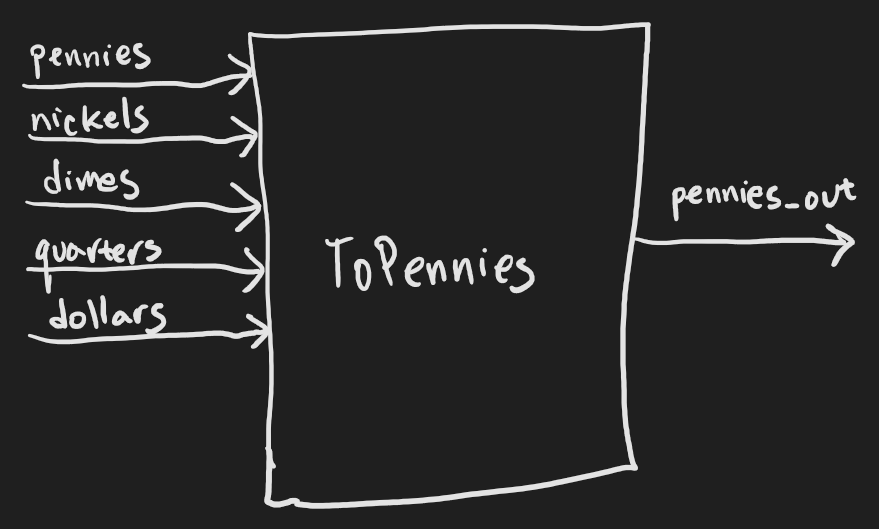 pennies
nickels
dimes
quarters
dollars
ToPennies
pennies_out